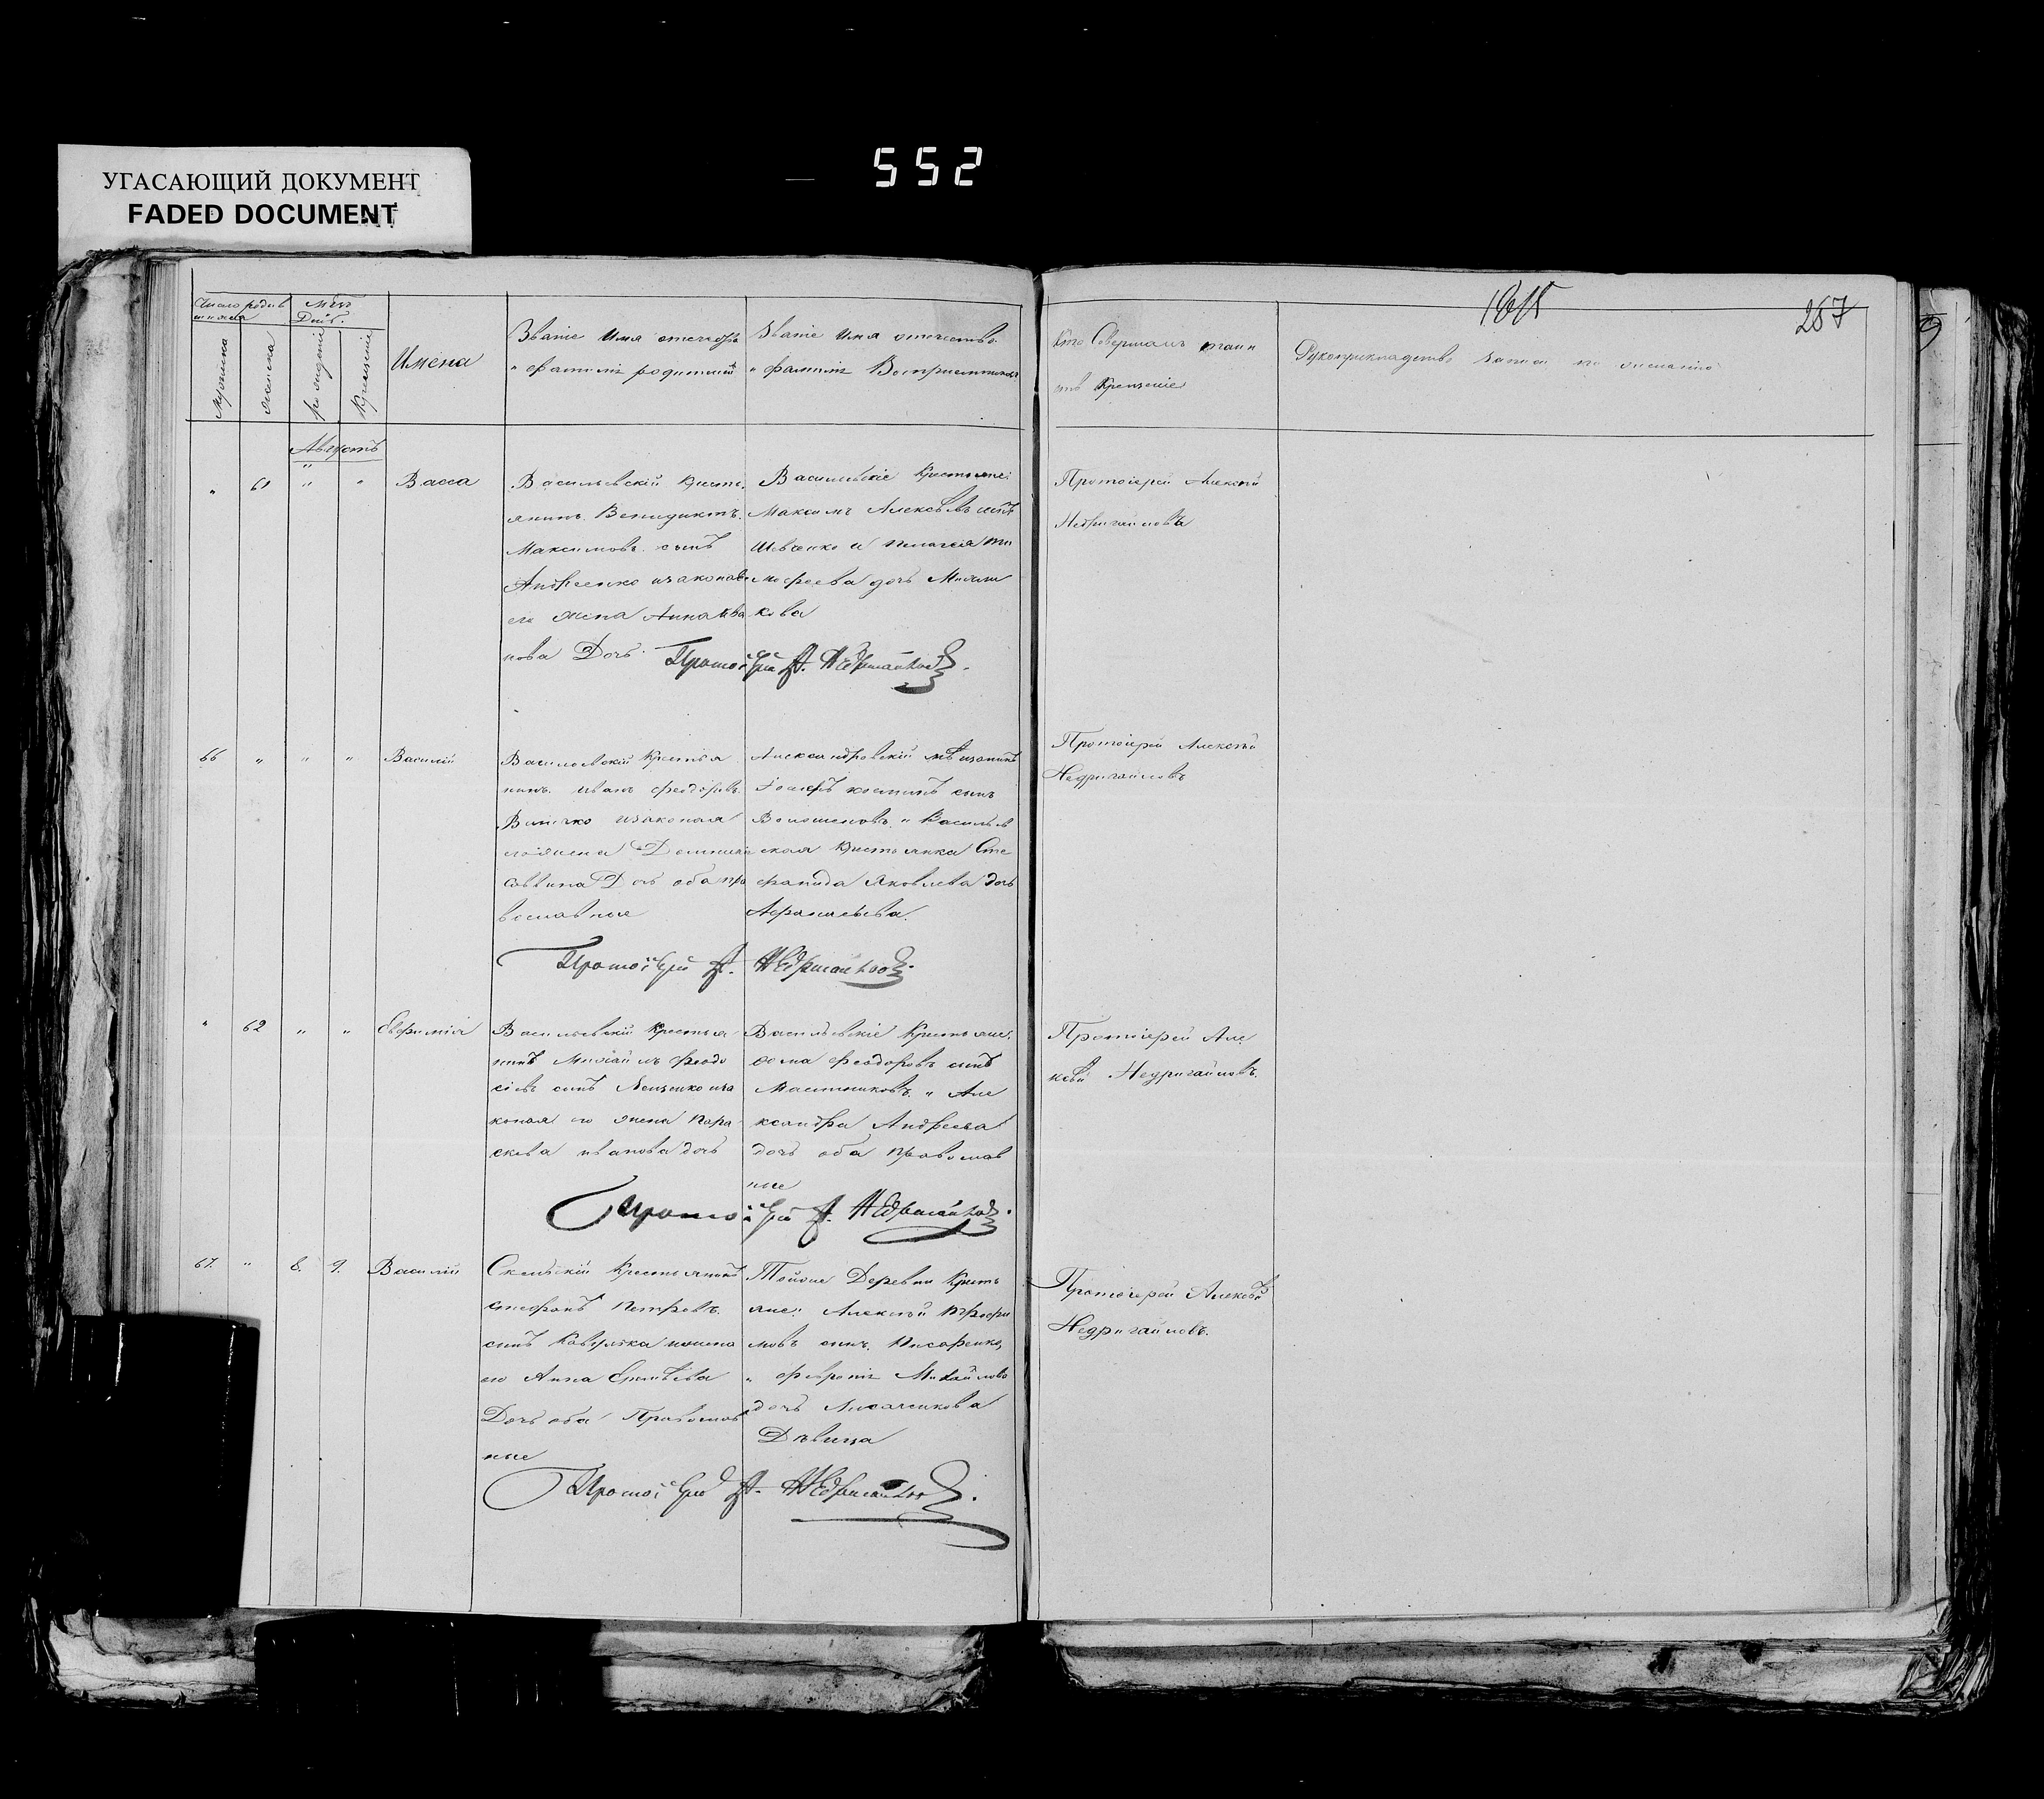 552
УГАСАЮЩИЙ ДОКУМЕНТ
FADED DOCUMENT
267
Число родив
шихся
Мѣсяц
День.
мужеска
женска
рожденія
Крещенія
Имена
Званіе Имя отечество
и фамилія родителей
Званіе имя отечество
и фамилія Восприемниковъ
Кто Совершалъ таин
ство Крещеніе
Рукоприкладство записи по желанію
Августъ
" 61 " " Васса
Васильевскій кресть
янинъ Венедиктъ
Максимовъ сынъ
Андреенко и законая
его жена Анна Ива
нова Дочь.
Васильевскіе Крестьяне:
Максимъ Алексѣевъ сынъ
Шевченко и Пелагея Ти
мофеева дочь
кова
Протоіерей Алексѣй
Недригайловъ
Протоіерей А. Недригайловъ.
66 " " " Василій
Васильевскій крестья
нинъ Иванъ Феодоровъ
Величко и законая
его жена Домникія
Саввина Дочь оба пра
вославные
Александровскій мѣщанинъ
Іосифъ Косминъ сынъ
Волошеновъ и Васильев
ская крестьянка Сте
фанида Яковлева дочь
Афанасьева.
Протоіерей Алексѣй
Недригайловъ
Протоіерей А. Недригайловъ.
" 62 " " Евфимія
Васильевскій крестья
нинъ Михаилъ Феодо
сіевъ сынъ Лещенко и за
коная его жена Пара
скева Иванова дочь
Васильевскіе Крестьяне:
Фома Феодоровъ сынъ
Масленниковъ и Але
ксандра Андреева
дочь оба Православ
ные
Протоіерей Але
ксѣй Недригайловъ.
Протоіерей А. Недригайловъ.
67. " 8. 9. Василій
Скельскій Крестьянинъ
Стефанъ Петровъ
сынъ Коверяка и жена
его Анна
Дочь оба Православ
ные
Тойже Деревни Кресть
яне: Алексѣй Трофи
мовъ сынъ Писаренко,
и Февронія Михайлова
дочь
Дѣвица
Протоіерей Алексѣй
Недригайловъ.
Протоіерей А. Недригайловъ.